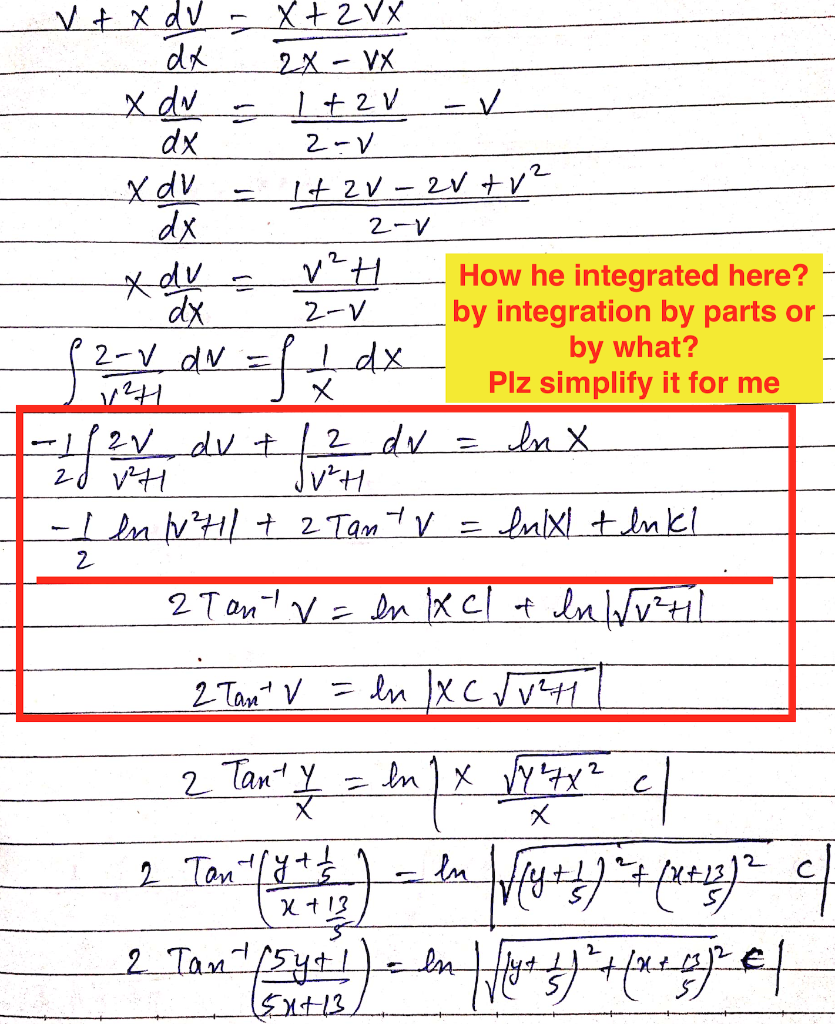 v + x dv/dx = x + 2vx / 2x - vx
x dv/dx = 1 + 2v / 2 - v - v
x dv/dx = 1 + 2v - 2v + v² / 2 - v
x dv/dx = v² + 1 / 2 - v
How he integrated here?
by integration by parts or
by what?
Plz simplify it for me
∫ 2 - v / v² + 1 dv = ∫ 1/x dx
-1/2 ∫ 2v / v² + 1 dv + ∫ 2 / v² + 1 dv = ln x
-1/2 ln |v² + 1| + 2 Tan⁻¹ v = ln|x| + ln|c|
2 Tan⁻¹ v = ln |x c| + ln |√v² + 1|
2 Tan⁻¹ v = ln |x c √v² + 1|
2 Tan⁻¹ y/x = ln | x √y² + x² / x c |
2 Tan⁻¹ (y + 1/5 / x + 13/5) = ln |√(y + 1/5)² + (x + 13/5)² c|
2 Tan⁻¹ (5y + 1 / 5x + 13) = ln |√(y + 1/5)² + (x + 13/5)² c|